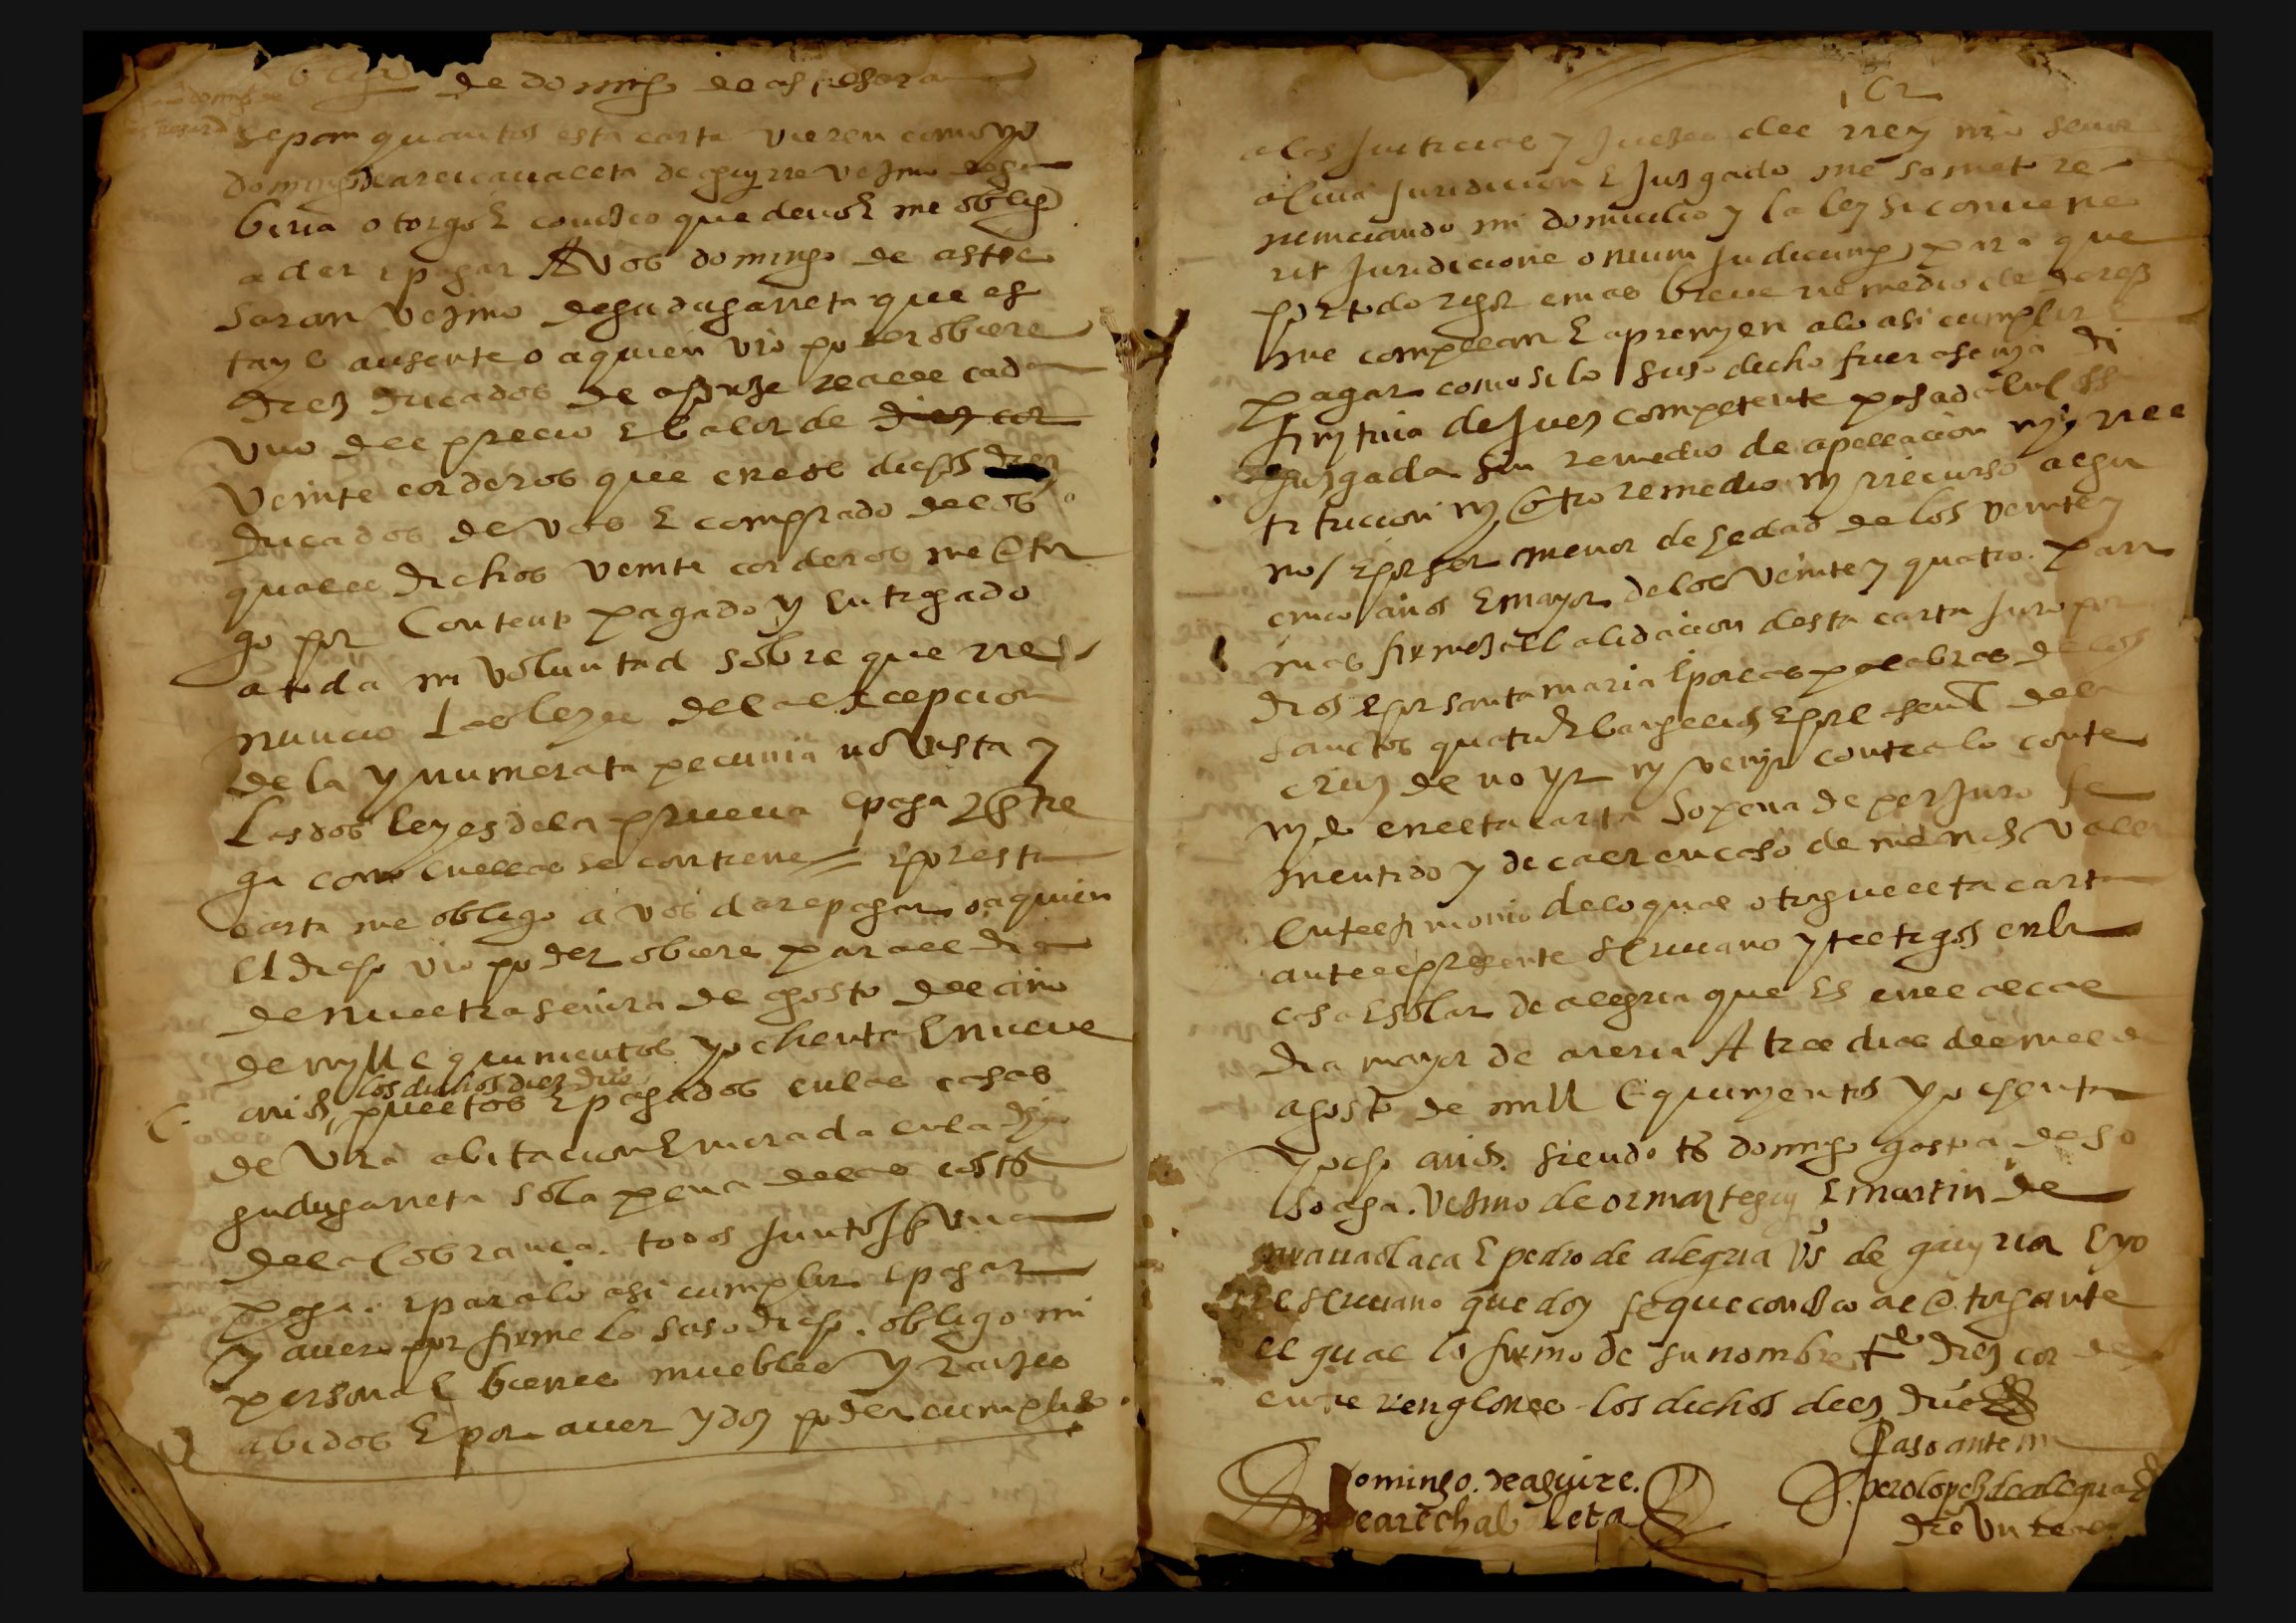 de domingo de as
sepan quantos esta carta vieren como yo
domingo de areicavaleta de aguyrre vezino de ga
biria otorgo E conozco que devo E me obligo
a dar e pagar A vos domingo de aste
soran vezino de gudugarreta que es
tays ausente o a quien vro poder obiere
diez ducados de a honze reales cada
uno del precio E balor de diez cor
veinte corderos que en esos dichos diez
ducados de vos E comprado de los
quales dichos veinte corderos me otor
go por Contento pagado y entregado
a toda mi voluntad sobre que rre
nuncio Las leyes de la excepcion
de la ynnumerata pecunia no vista y
Las dos leyes de la prueva e paga y entre
ga como en ellas se contiene E por esta
carta me obligo a vos dar e pagar o a quien
el dicho vro poder obiere para el dia
de nuestra señora de agosto del año
de myll e quinientos y ochenta E nueve
los dichos diez dus
años, puestos E pagados en las casas
de vra abitacion E morada en la dha
gudugarreta so la pena de las costas
de la Cobrança. todos juntos en una
paga. E para lo asi cumplir E pagar
y aver por firme lo suso dicho. obligo mi
persona E bienes muebles y raizes
abidos E por aver y doy poder cumplido
162
a las justicias y juezes del rrey nro señor
a cuia juridicion E juzgado me someto re
nunciando mi domicilio y la ley si convene
rit juridicione onium judicum, para que
por todo rigor e mas breve rremedio de derecho
me compelan E apremyen a lo asi cumplir E
pagar como si lo suso dicho fuera sentencia di
finytiva de Juez competente pasada en cossa
juzgada sin remedio de apellacion ny rres
titucion ny otro remedio ny rrecurso algu
no / E por ser menor de hedad de los veinte y
cinco años E mayor de los veinte y quatro. para
mas firmeza E balidacion desta carta juro por
dios E por santa maria E por las palabras de los
sanctos quatro Evangelios E por la señal de la
cruz de no yr ny venyr contra lo conte
nydo en esta carta So pena de perjuro fe
mentido y de caer en caso de menos valer
En testimonio de lo qual otorgue esta carta
ante el presente escrivano y testigos en la
casa E solar de alegria que es en el alcal
dia mayor de areria A tres dias del mes de
agosto de mill E quinyentos y ochenta
y ocho años. siendo tos domingo gorra de so
soaga. vezino de ormaztegui E martin de
E pedro de alegria vos de gaviria E yo
el escrivano que doy fe que conozco al otorgante
el qual lo firmo de su nombre tdo diez cor
entre renglones los dichos diez dus
Paso ante mi
Domingo. de aguirre. pero lopez de alegria
de arechabaleta